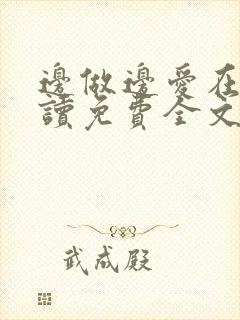 邊做邊愛在
讀免費全文
武成殿